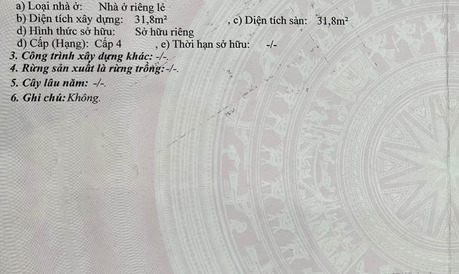 a) Loại nhà ở: Nhà ở riêng lẻ
b) Diện tích xây dựng: 31,8m² , c) Diện tích sàn: 31,8m²
d) Hình thức sở hữu: Sở hữu riêng
đ) Cấp (Hạng): Cấp 4 , e) Thời hạn sở hữu: -/-
3. Công trình xây dựng khác: -/-.
4. Rừng sản xuất là rừng trồng: -/-.
5. Cây lâu năm: -/-.
6. Ghi chú: Không.